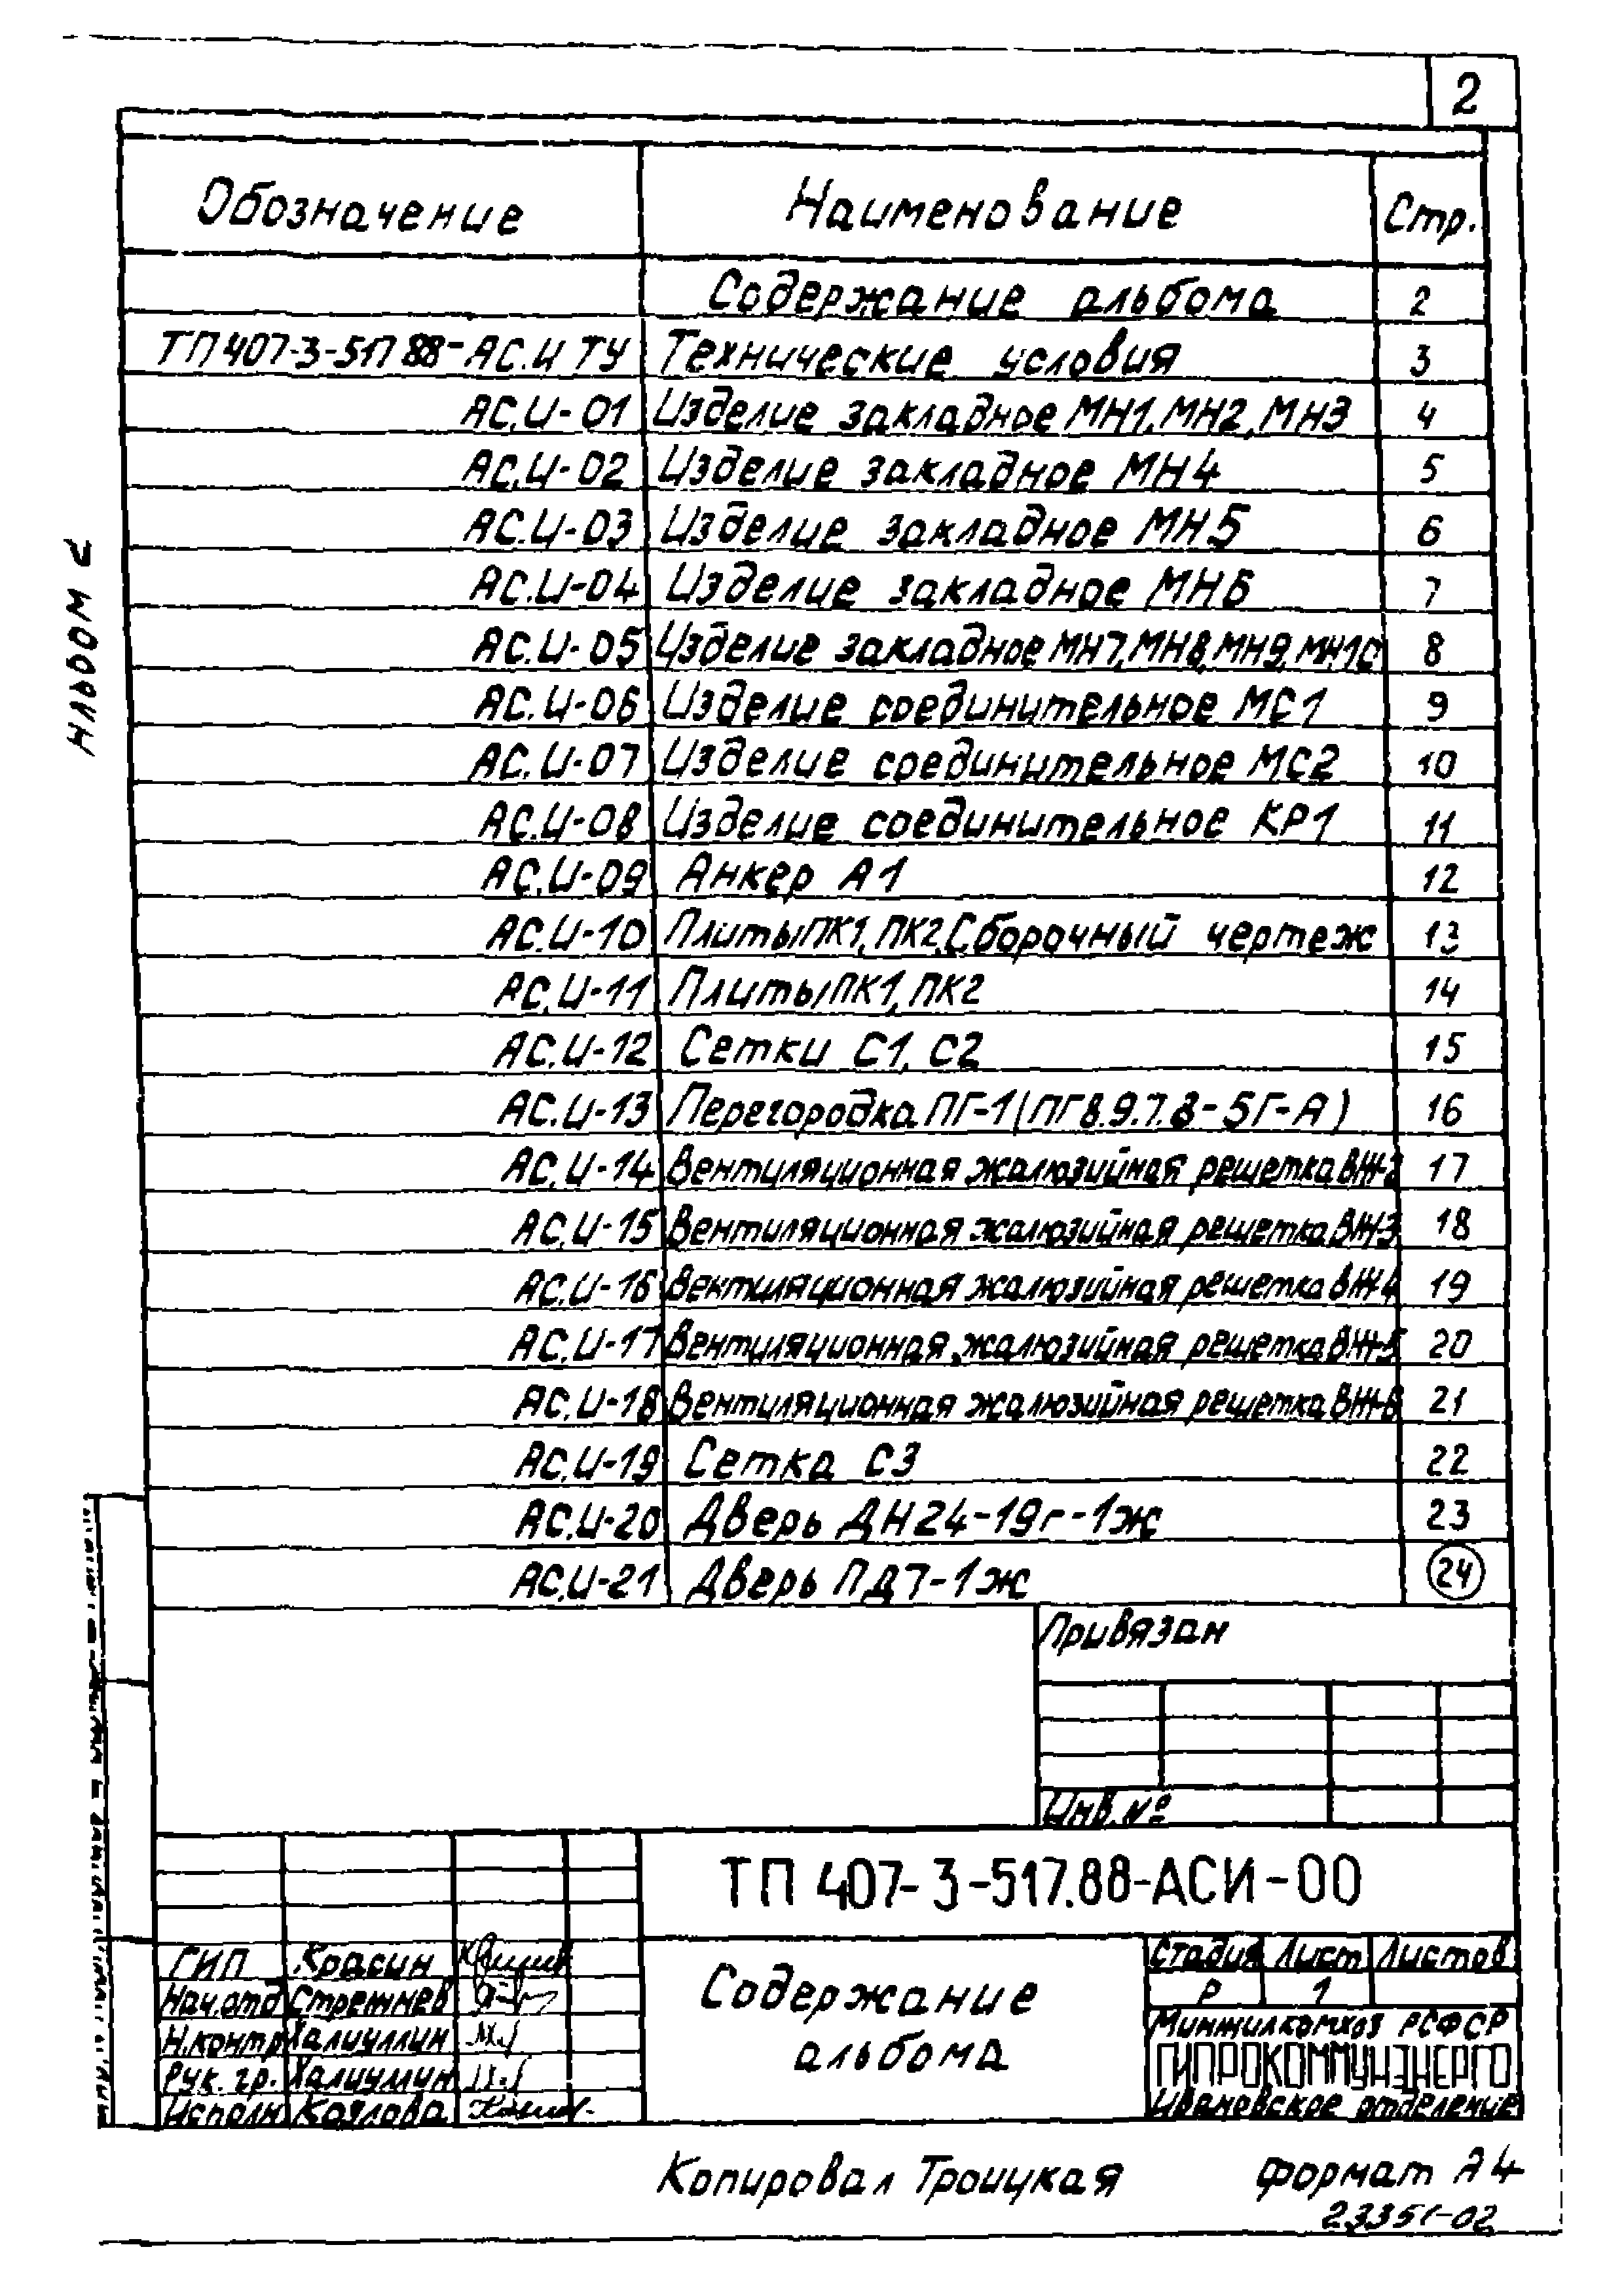 2
Обозначение Наименование Стр.
Содержание альбома 2
ТП 407-3-517.88-АС.И ТУ Технические условия 3
АС.И-01 Изделие закладное МН1, МН2, МН3 4
АС.И-02 Изделие закладное МН4 5
АС.И-03 Изделие закладное МН5 6
АС.И-04 Изделие закладное МН6 7
АС.И-05 Изделие закладное МН7, МН8, МН9, МН10 8
АС.И-06 Изделие соединительное МС1 9
АС.И-07 Изделие соединительное МС2 10
АС.И-08 Изделие соединительное КР1 11
АС.И-09 Анкер А1 12
АС.И-10 Плиты ПК1, ПК2. Сборочный чертеж 13
АС.И-11 Плиты ПК1, ПК2 14
АС.И-12 Сетки С1, С2 15
АС.И-13 Перегородка ПГ-1 (ПГ 8.9.7.8-5Г-А) 16
АС.И-14 Вентиляционная жалюзийная решетка ВЖ-2 17
АС.И-15 Вентиляционная жалюзийная решетка ВЖ-3 18
АС.И-16 Вентиляционная жалюзийная решетка ВЖ-4 19
АС.И-17 Вентиляционная жалюзийная решетка ВЖ-5 20
АС.И-18 Вентиляционная жалюзийная решетка ВЖ-6 21
АС.И-19 Сетка С3 22
АС.И-20 Дверь ДН24-19г-1ж 23
АС.И-21 Дверь ПД7-1ж 24
Альбом 2
Привязан
Инв. №
ТП 407-3-517.88-АСИ-00
ГИП Красин
Нач.отд Стрежнев
Н.контр Халиуллин
Рук. гр. Халиуллин
Исполн Козлова
Содержание
альбома
Стадия Лист Листов
Р 1
Минжилкомхоз РСФСР
ГИПРОКОММУНЭНЕРГО
Ивановское отделение
Копировал Троицкая Формат А4
23351-02